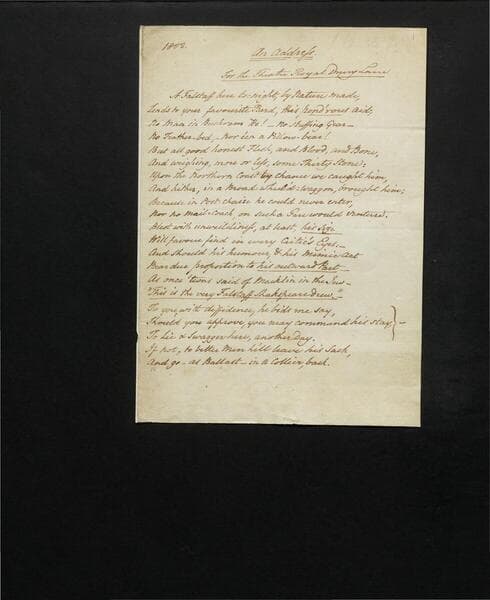 1802.
An Address.
For the Theatre Royal Drury Lane
A Falstaff here to-night, by Nature made,
Lends to your favourite Bard, his pond'rous aid;
No Man in Buckram he! – no stuffing Gear –
No Feather-bed – Nor e'en a Pillow-bear!
But all good honest Flesh, and Blood, and Bone,
And weighing, more or less, some Thirty Stone;
Upon the Northern Coast by chance we caught him,
And hither, in a Broad wheel'd-Waggon, brought him;
Because in Post chaise he could never enter,
Nor no Mail-coach, on such a Fare would venture.
Blest with unwieldiness, at least, his Size
Will favour find in every Critic's Eyes –
And should his humour, & his Mimic Art
Bear due proportion to his outward Part –
As once 'twas said of Macklin in the Jew –
"This is the very Falstaff Shakespeare drew –"
To you, with diffidence, he bids me say,
Should you approve, you may command his stay,
To lie & Swagger here, another day.
If not, to better Men he'll leave his Sack,
And go – as Ballast – in a Collier, back.